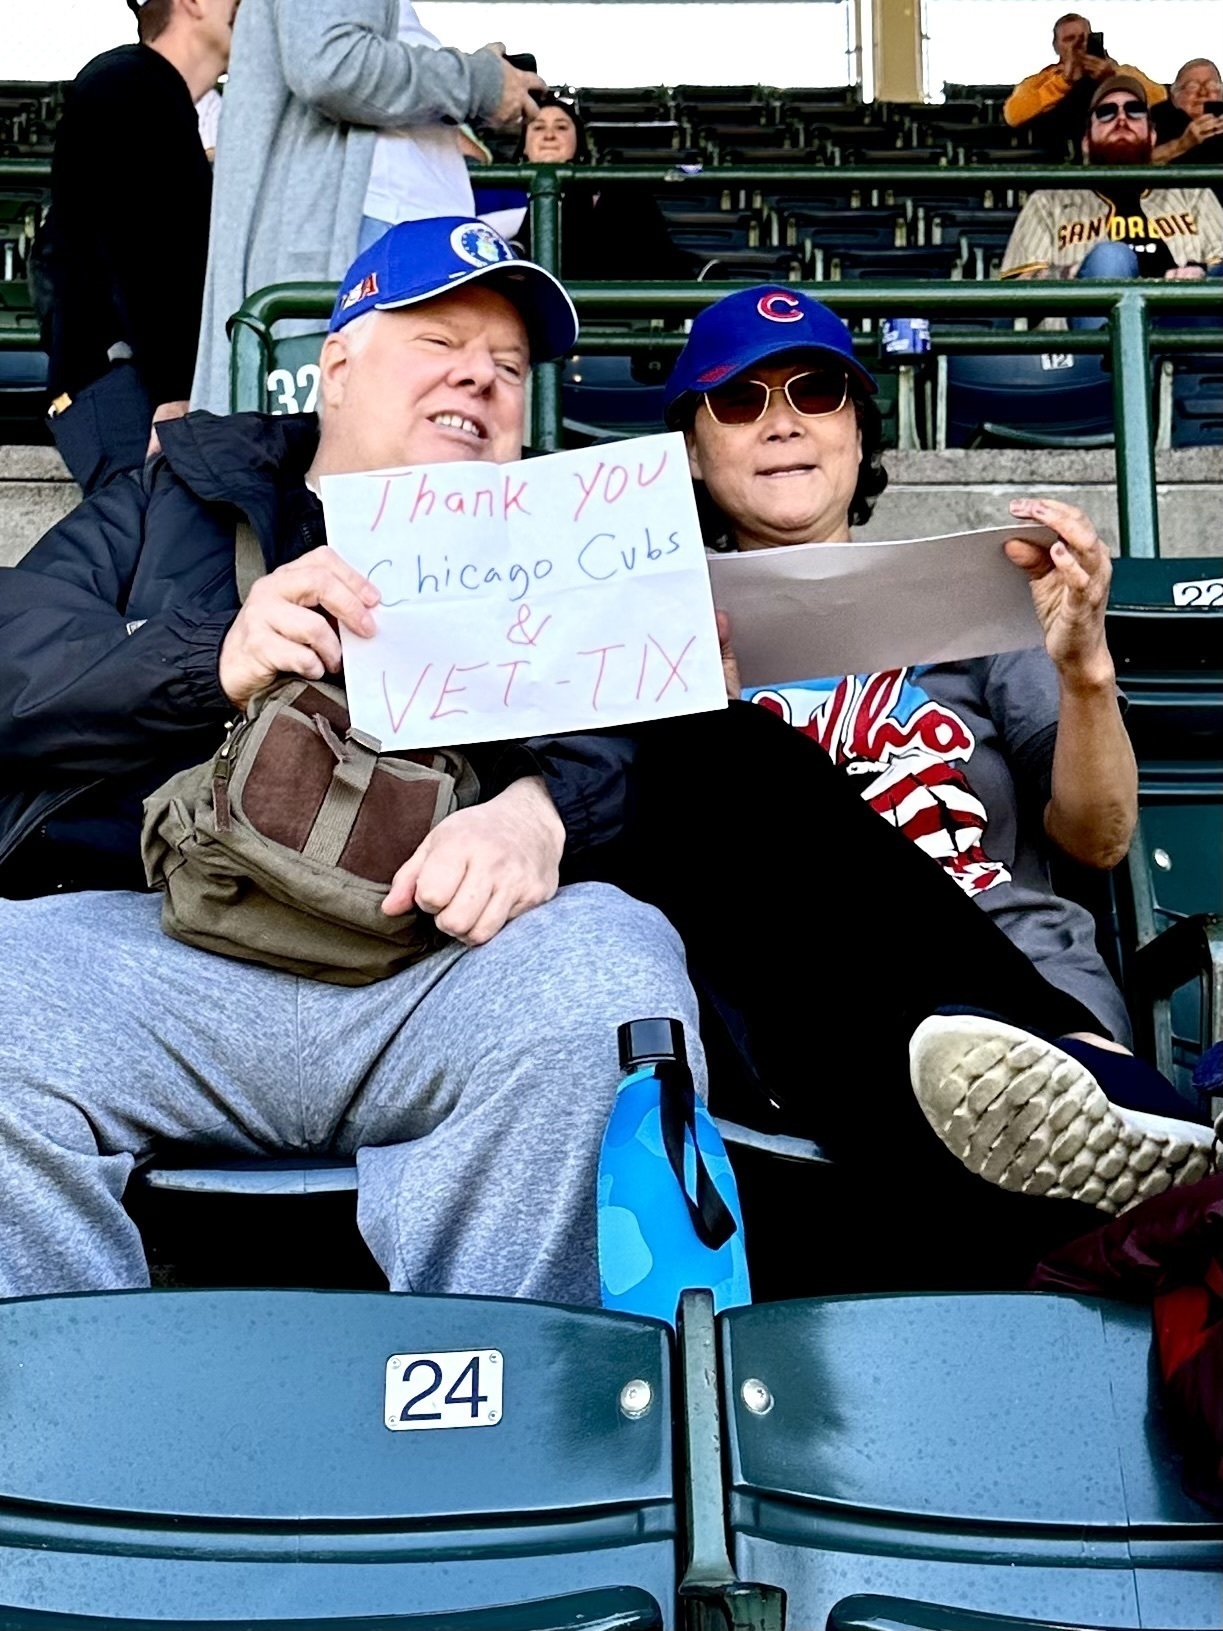 SAN DIE
32
C
12
Thank YOU
Chicago Cubs
&
VET-TIX
22
Who
24